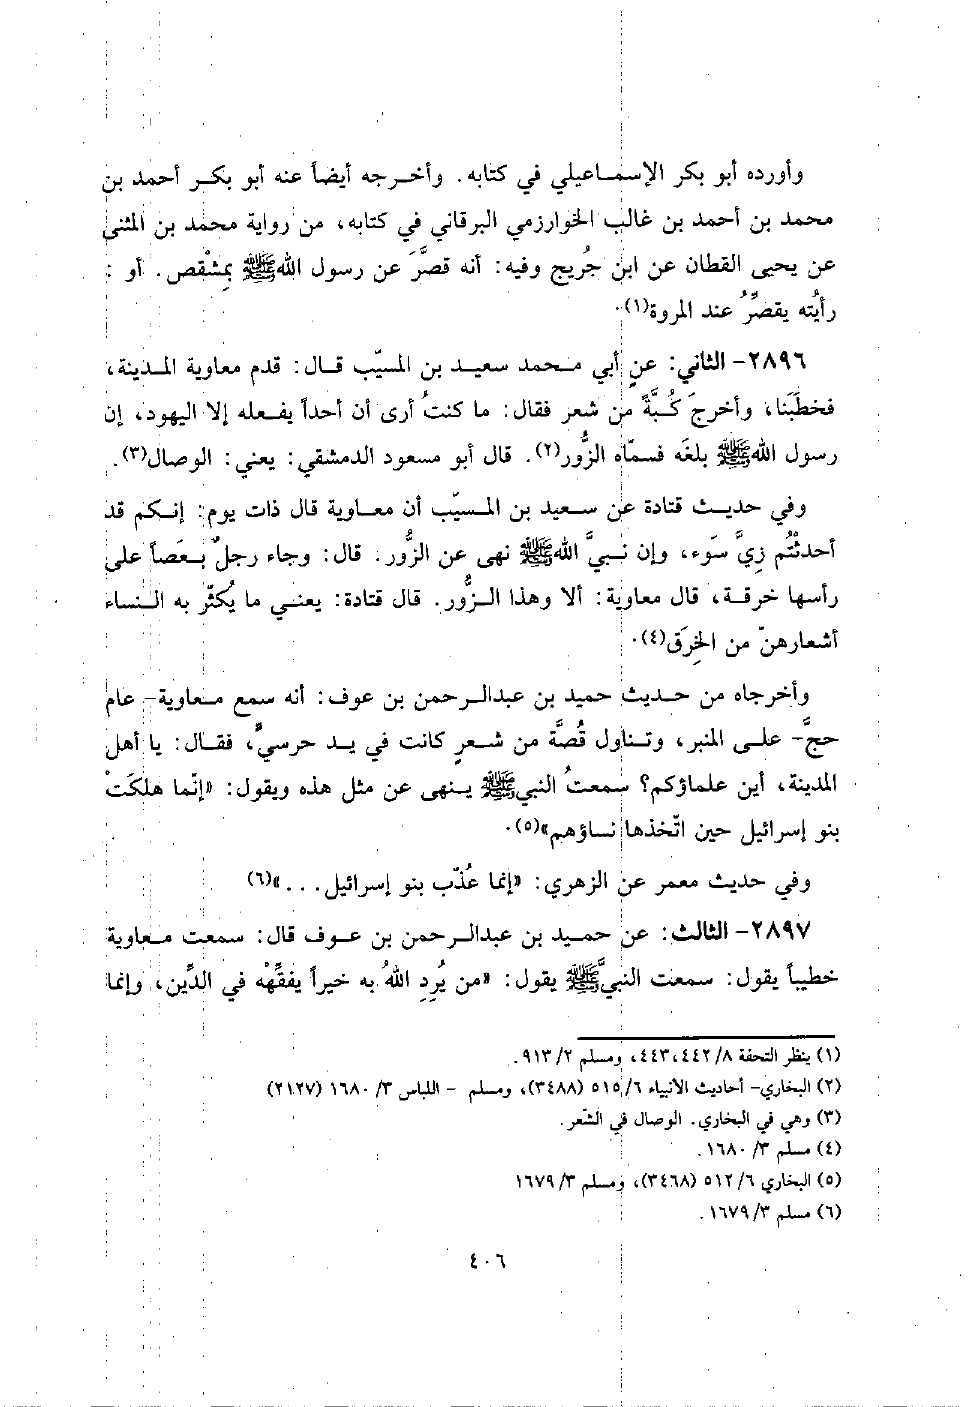 وأورده أبو بكر الإسماعيلي في كتابه. وأخرجه أيضاً عنه أبو بكر أحمد بن
محمد بن أحمد بن غالب الخوارزمي البرقاني في كتابه، من رواية محمد بن المثنى
عن يحيى القطان عن ابن جُريج وفيه: أنه قصَّرَ عن رسول الله ﷺ بمِشْقص. أو:
رأيتُه يقصِّرُ عند المروة(١).
٢٨٩٦- الثاني: عن أبي محمد سعيد بن المسيّب قال: قدم معاوية المدينة،
فخطَبَنا، وأخرجَ كُبَّةً من شعر فقال: ما كنتُ أرى أن أحداً يفعله إلا اليهود، إن
رسول الله ﷺ بلغَه فسمّاه الزُّور(٢). قال أبو مسعود الدمشقي: يعني: الوصال(٣).
وفي حديث قتادة عن سعيد بن المسيّب أن معاوية قال ذات يوم: إنكم قد
أحدثْتُم زِيَّ سَوء، وإن نبيَّ الله ﷺ نهى عن الزُّور. قال: وجاء رجلٌ بعَصاً على
رأسها خرقة، قال معاوية: ألا وهذا الزُّور. قال قتادة: يعني ما يُكثّر به النساء
أشعارهنّ من الخِرَق(٤).
وأخرجاه من حديث حميد بن عبدالرحمن بن عوف: أنه سمع معاوية- عام
حجَّ- على المنبر، وتناول قُصَّة من شعرٍ كانت في يد حرسيٍّ، فقال: يا أهل
المدينة، أين علماؤكم؟ سمعتُ النبي ﷺ ينهى عن مثل هذه ويقول: «إنّما هلكَتْ
بنو إسرائيل حين اتّخذها نساؤهم»(٥).
وفي حديث معمر عن الزهري: «إنما عُذّب بنو إسرائيل...»(٦)
٢٨٩٧- الثالث: عن حميد بن عبدالرحمن بن عوف قال: سمعت معاوية
خطيباً يقول: سمعت النبيَّ ﷺ يقول: «من يُرِدِ اللهُ به خيراً يفقِّهْه في الدِّين، وإنما
(١) ينظر التحفة ٨/ ٤٤٢،٤٤٣، ومسلم ٢/ ٩١٣.
(٢) البخاري- أحاديث الأنبياء ٦/ ٥١٥ (٣٤٨٨)، ومسلم - اللباس ٣/ ١٦٨٠ (٢١٢٧)
(٣) وهي في البخاري. الوصال في الشّعر.
(٤) مسلم ٣/ ١٦٨٠.
(٥) البخاري ٦/ ٥١٢ (٣٤٦٨)، ومسلم ٣/ ١٦٧٩
(٦) مسلم ٣/ ١٦٧٩.
٤٠٦